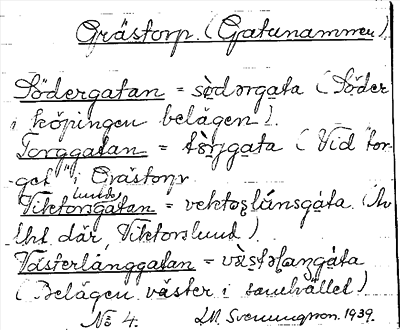 Grästorp. (Gatunamnen)
Södergatan = sö̀dərgata (Söder
i köpingen belägen).
Torggatan = tɔ̀rjgata (Vid tor-
get i Grästorp
Viktorslundsgatan = vektoʂlúnsgáta. (
där, Viktorslund).
Västerlånggatan = væ̀stəlaŋgáta
(Belägen väster i samhället)
No 4. Svenungson. 1939.